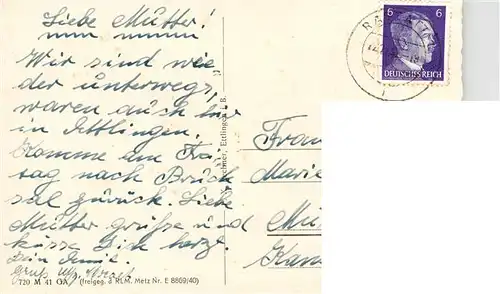 Liebe Mutter!
Wir sind wie
der unterwegs,
waren auch hier
in Ettlingen.
Komme am Frei
tag nach Bruch
sal zurück. Liebe
Mutter grüsse und
küsse Dich herzl.
Dein
Gruss
720 M 41 OA (freigeg. d RLM. Metz Nr. E 8869/40)
Ettlingen i. B.
6 6
DEUTSCHES REICH
Frau
Marie